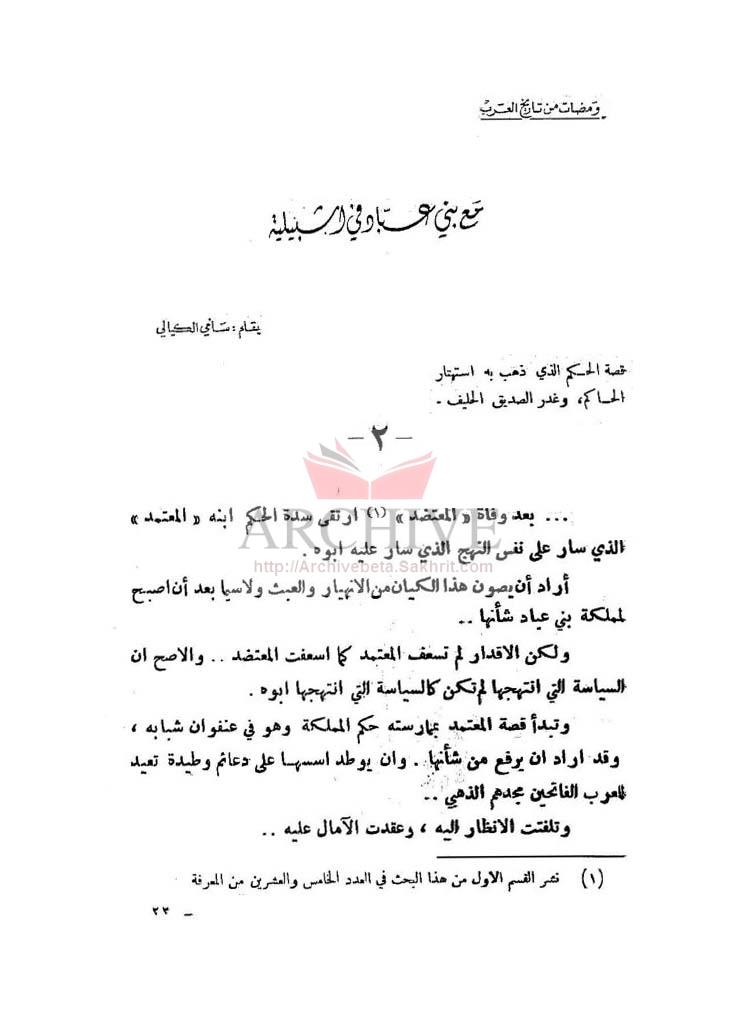 ومضات من تاريخ العرب
مع بني عباد في اشبيلية
بقلم : سامي الكيالي
قصة الحكم الذي ذهب به استهتار
الحاكم، وغدر الصديق الحليف -
- ٢ -
... بعد وفاة « المعتضد » (١) ارتقى سدة الحكم ابنه « المعتمد »
ARCHIVE
الذي سار على نفس النهج الذي سار عليه ابوه .
http://Archivebeta.Sakhrit.com
أراد أن يصون هذا الكيان من الانهيار والعبث ولاسيما بعد أن اصبح
لمملكة بني عباد شأنها ..
ولكن الاقدار لم تسعف المعتمد كما اسعفت المعتضد .. والاصح ان
السياسة التي انتهجها لم تكن كالسياسة التي انتهجها ابوه .
وتبدأ قصة المعتمد بممارسته حكم المملكة وهو في عنفوان شبابه ،
وقد اراد ان يرفع من شأنها . وان يوطد اسسها على دعائم وطيدة تعيد
للعرب الفاتحين مجدهم الذهبي ..
وتلفتت الانظار اليه ، وعقدت الآمال عليه ..
(١) نشر القسم الاول من هذا البحث في العدد الخامس والعشرين من المعرفة
- ٢٣